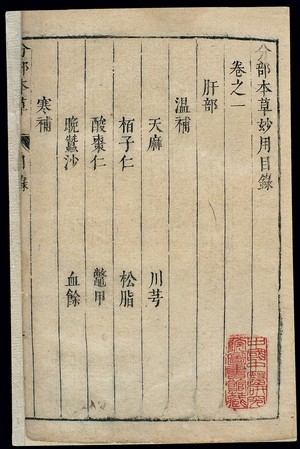 分部本草妙用目錄
卷之一
肝部
温補
天麻 川芎
栢子仁 松脂
酸棗仁 鼈甲
晚蠶沙 血餘
寒補
分部本草 目錄